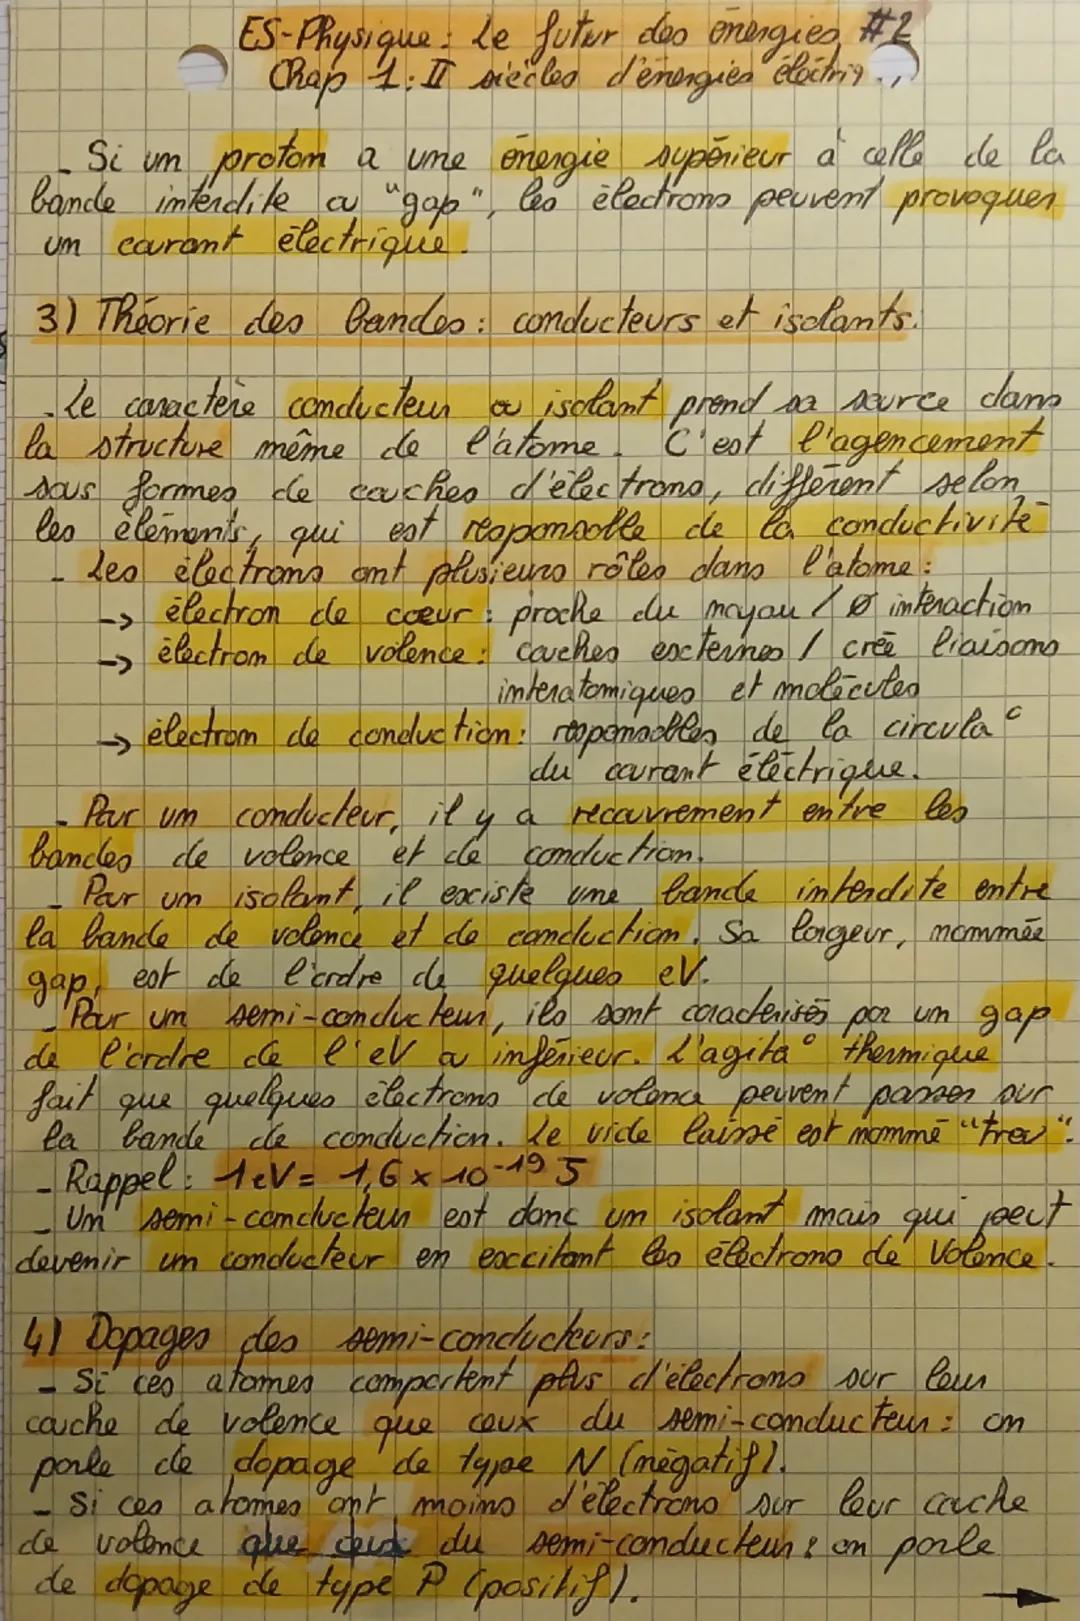 ES-Physique: Le futur des énergies #2
Chap 1: II siècles d'énergies électriq
- Si un proton a une énergie supérieur à celle de la
bande interdite ou "gap", les électrons peuvent provoquer
un courant électrique.
3) Théorie des bandes: conducteurs et isolants.
- Le caractère conducteur ou isolant prend sa source dans
la structure même de l'atome. C'est l'agencement
sous formes de couches d'électrons, différent selon
les éléments, qui est responsable de la conductivité
- Les électrons ont plusieurs rôles dans l'atome:
-> électron de cœur: proche du noyau / Ø interaction
-> électron de valence: couches externes / créé liaisons
interatomiques et molécules
-> électron de conduction: responsables de la circula°
du courant éléctrique.
- Pour un conducteur, il y a recouvrement entre les
bandes de valence et de conduction.
- Pour un isolant, il existe une bande interdite entre
la bande de valence et de conduction. Sa largeur, nommée
gap, est de l'ordre de quelques eV.
- Pour un semi-conducteur, ils sont caractérisés par un gap
de l'ordre de l'eV ou inférieur. L'agita° thermique
fait que quelques électrons de valence peuvent passer sur
la bande de conduction. Le vide laissé est nommé "trou".
- Rappel: 1eV = 1,6 x 10⁻¹⁹ J
- Un semi-conducteur est donc un isolant mais qui peut
devenir un conducteur en excitant les électrons de Valence.
4) Dopages des semi-conducteurs:
- Si ces atomes comportent plus d'électrons sur leur
couche de valence que ceux du semi-conducteur: on
parle de dopage de type N (négatif).
- Si ces atomes ont moins d'électrons sur leur couche
de valence que ceux du semi-conducteur: on parle
de dopage de type P (positif).